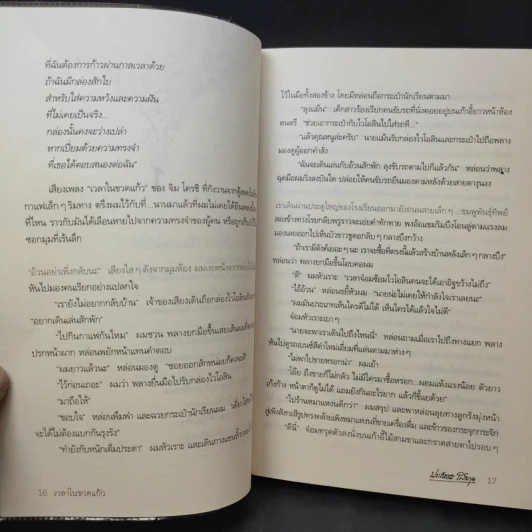 ที่ฉันต้องการก้าวผ่านกาลเวลาด้วย
ถ้าฉันมีกล่องสักใบ
สำหรับใส่ความหวังและความฝัน
ที่ไม่เคยเป็นจริง...
กล่องนั้นคงจะว่างเปล่า
หากเปี่ยมด้วยความทรงจำ
ที่เธอได้ตอบสนองต่อฉัน"
เสียงเพลง "เวลาในขวดแก้ว" ของ จิม โครซี ที่กังวานจากตู้เพลงใน
กาแฟเล็กๆ ริมทาง ตรึงผมไว้กับที่...นานมาแล้วที่ผมไม่เคยได้ยินเพลงนี้
ที่ไหน ราวกับมันได้เลือนหายไปจากความทรงจำของผู้คน หรือถูกเก็บ
ซอกมุมที่เร้นลึก
"อ้วนอย่าเพิ่งกลับนะ" เสียงใสๆ ดังจากมุมห้อง ผมเงยหน้าจาก
หันไปมองคนเรียกอย่างแปลกใจ
"เรายังไม่อยากกลับบ้าน" เจ้าของเสียงเดินถือกล่องไวโอลิน
"อยากเดินเล่นสักพัก"
"ไปกินกาแฟกันไหม" ผมชวน พลางยกมือขึ้นเสยเส้นผมที่
ปรกหน้าผาก หล่อนพยักหน้าแทนคำตอบ
"ผมยาวแล้วนะ" หล่อนมองดู "ซอยออกสักหน่อยก็คงจะดี"
"ไว้ก่อนเถอะ" ผมว่า พลางยื่นมือไปรับกล่องไวโอลิน
"มาถือให้"
"ขอบใจ" หล่อนพึมพำ และฉวยกระเป๋านักเรียนผม
จะได้ไม่ต้องแบกกันรุงรัง"
"ทำยังกับหนักเต็มประดา" ผมหัวเราะ และเดิน
16 เวลาในขวดแก้ว
ไว้ในมือทั้งสองข้าง โดยมีหล่อนถือกระเป๋านักเรียนตามมา
"ลุงแม้น" เด็กสาวร้องเรียกคนขับรถที่นั่งคอยอยู่บนเก้าอี้ยาวหน้าห้อง
ดนตรี "ช่วยเอากระเป๋ากับไวโอลินไปใส่รถที..."
"แล้วคุณหนูล่ะครับ" นายแม้นรับกล่องไวโอลินและกระเป๋าไปถือพลาง
มองดูผู้ออกคำสั่ง
"ฉันจะเดินเล่นกับอ้วนสักพัก ลุงขับรถตามไปก็แล้วกัน" หล่อนว่าพลาง
ฉุดมือผมวิ่งลงบันได ปล่อยให้คนขับรถยืนมองตามหลังด้วยสายตางุนงง
เราเดินผ่านประตูใหญ่ของโรงเรียนออกมายังถนนสายเล็กๆ...ชมพูพันธุ์ทิพย์
"ถ้ามีตังค์เยอะๆ นะ เราจะซื้อที่ตรงนี้แล้วสร้างบ้านหลังเล็กๆ กลางบึง"
หล่อนว่า พลางยกมือขึ้นโอบคอผม
"ดี" ผมหัวเราะ "เวลาจ๋อมซ้อมไวโอลินคนจะได้เอาอิฐขว้างไม่ถึง"
"ไอ้อ้วน" หล่อนขยี้หัวผม "นายน่ะไม่เคยให้กำลังใจเราเลยนะ"
"ผมมันประเภทเห็นใครดีไม่ได้ เห็นใครได้แล้วใจไม่ดี"
จ๋อมหัวเราะฉาบๆ
"นายจะพาเราเดินไปถึงไหนนี่" หล่อนถามเมื่อเราไปถึงทางแยก พลาง
หันไปดูรถเบนซ์สีดำใหม่เอี่ยมที่แล่นตามมาห่างๆ
"ไม่พาไปขายหรอกน่า" ผมเย้า
"ไปร้านหมาแหงนดีกว่า" ผมสรุป และพาหล่อนลุยทางลูกรังมุ่งหน้า
"ดีนี่" จ๋อมทรุดตัวลงนั่งบนเก้าอี้ไม้สามขาและกวาดสายตาไปรอบๆ
17